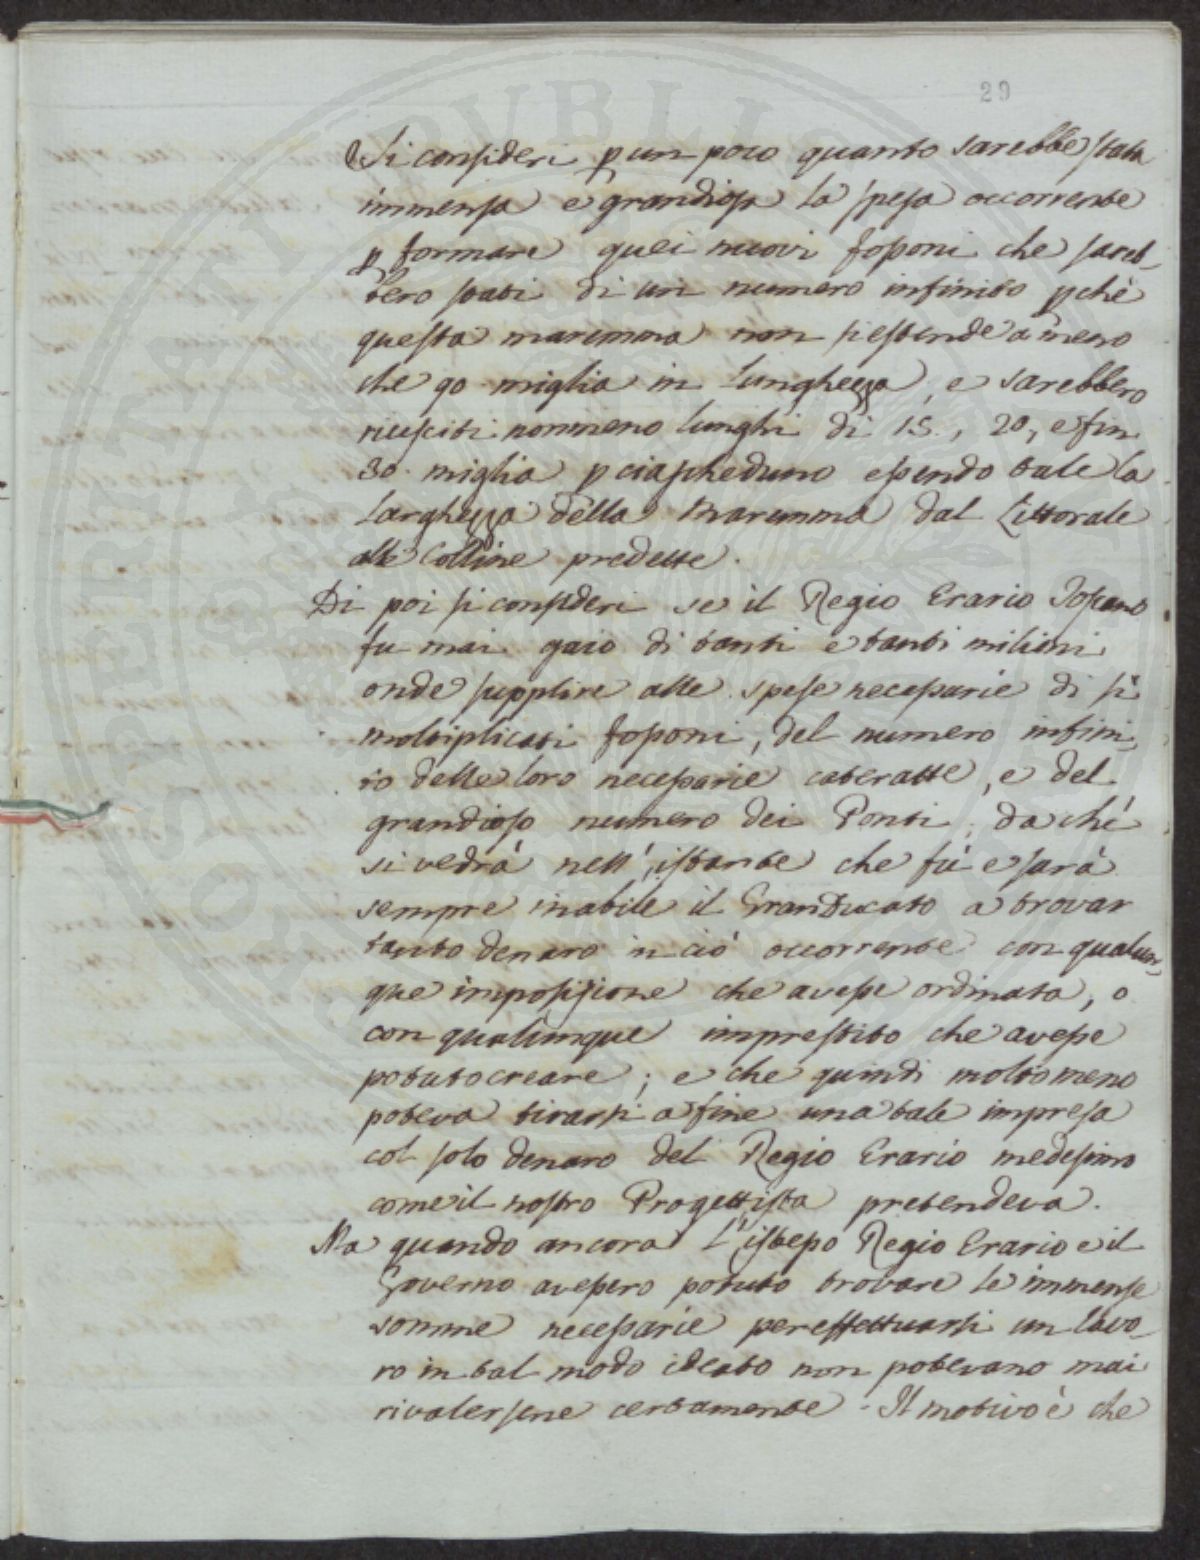 29
Si consideri p un poco quanto sarebbe stata
immensa e grandiosa la spesa occorrente
p formare quei nuovi fossoni che sareb-
bero stati di un numero infinito pchè
questa maremma non si estende a meno
che 90 miglia in Lunghezza, e sarebbero
riusciti nonmeno lunghi di 15., 20, e fin
30. miglia p ciascheduno essendo tale la
Larghezza della Maremma dal Littorale
alle Colline predette.
Di poi si consideri se il Regio Erario Toscano
fu mai gaio di tanti e tanti milioni
onde supplire alle spese necessarie di sì
moltiplicati fossoni, del numero infini-
to delle loro necessarie cateratte, e del
grandioso numero dei Ponti, da chè
si vedrà nell'istante che fù e sarà
sempre inabile il GranDucato a trovar
tanto denaro in ciò occorrente con qualun-
que imposizione che avesse ordinata, o
con qualunque imprestito che avesse
potuto creare; e che quindi molto meno
poteva tirarsi a fine una tale impresa
col solo denaro del Regio Erario medesimo
come il nostro Progettista pretendeva.
Ma quando ancora L'istesso Regio Erario e il
Governo avessero potuto trovare le immense
somme necessarie per effettuarsi un lavo-
ro in tal modo ideato non potevano mai
rivalersene certamente. Il motivo è che
PROSPERITATI PUBLI